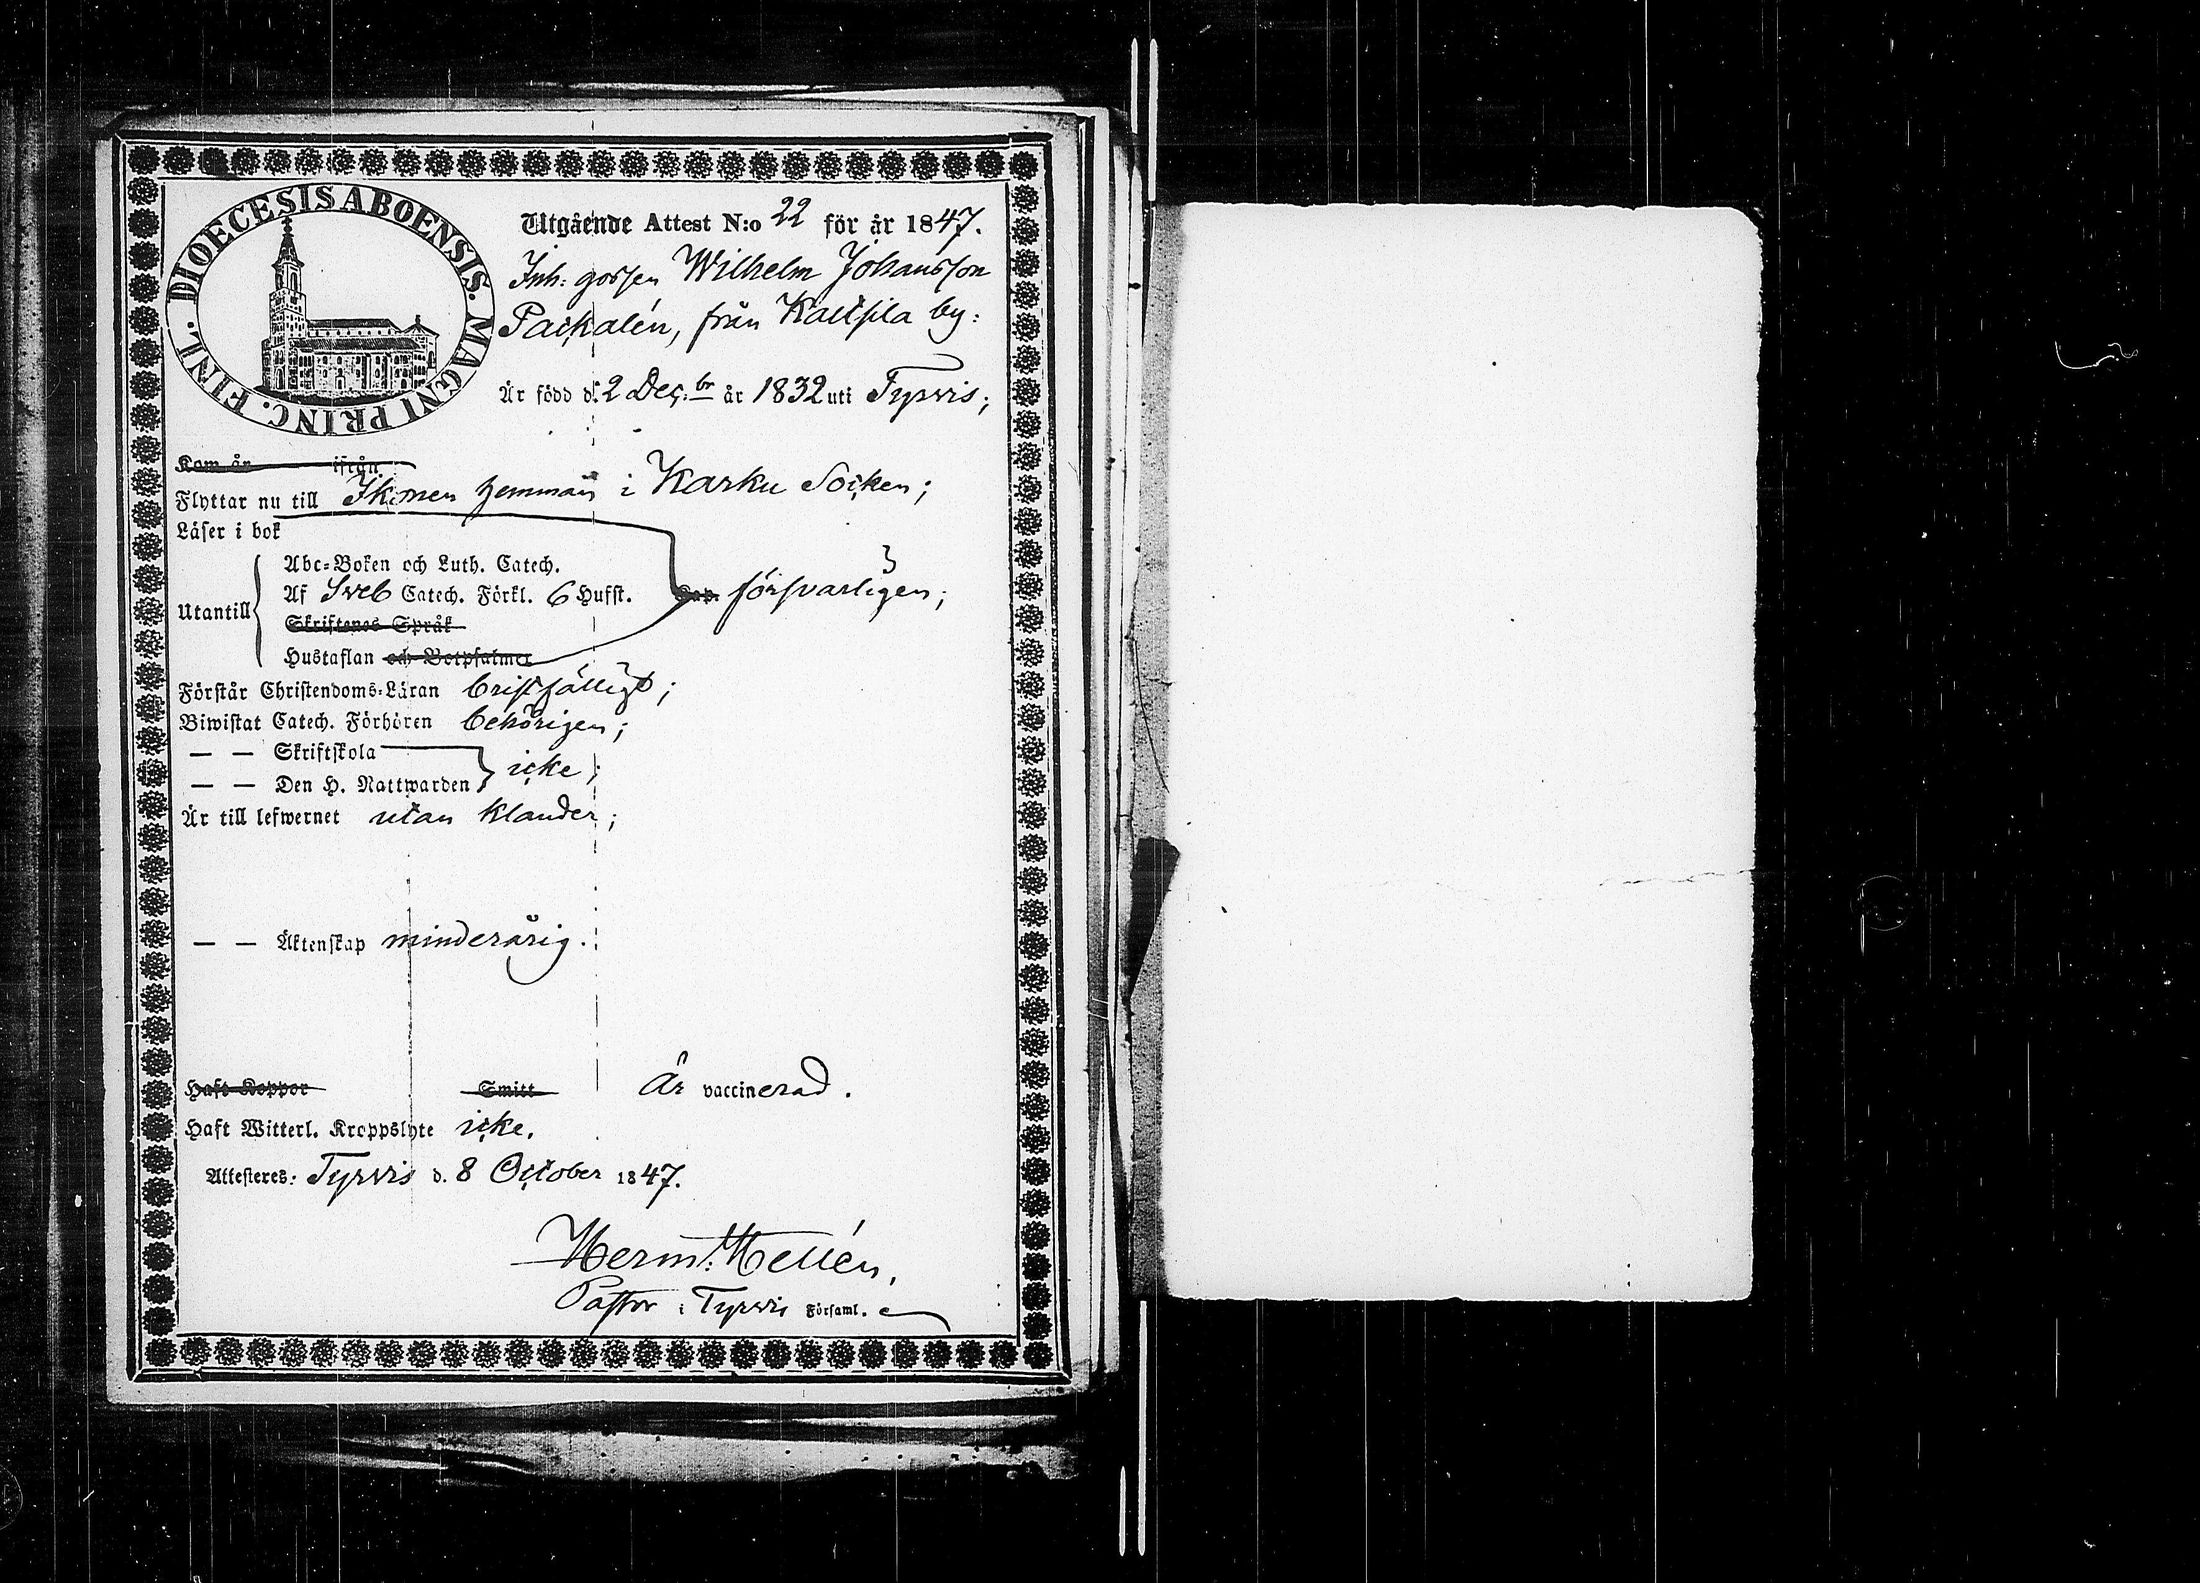 DIOECESIS ABOENSIS. MAGNI PRINC. FINL.
Utgående Attest N:o 22 för år 1847.
Inh: gossen Wilhelm Johansson
Packalén, från Kaltsila by:
Är född d. 2 Dec:br år 1832 uti Tyrvis;
Kom år ifrån
Flyttar nu till Ikonen hemman i Karku Socken;
Läser i bok
Abc-Boken och Luth. Catech.
Utantill Af Sveb Catech. Förkl. 6 Hufst. Cap. försvarligen;
Skriftenes Språk
Hustaflan och Botpsalmer
Förstår Christendoms-Läran bristfälligt;
Biwistat Catech. Förhören behörigen;
— — Skriftskola
— — Den H. Nattwarden icke;
Är till lefwernet utan klander;
— — Äktenskap minderårig.
Haft Koppor Smitt Är vaccinerad.
Haft Witterl. Kroppslyte icke.
Attesteres: Tyrvis d. 8 October 1847.
Herm: Hellén,
Pastor i Tyrvis Församl.